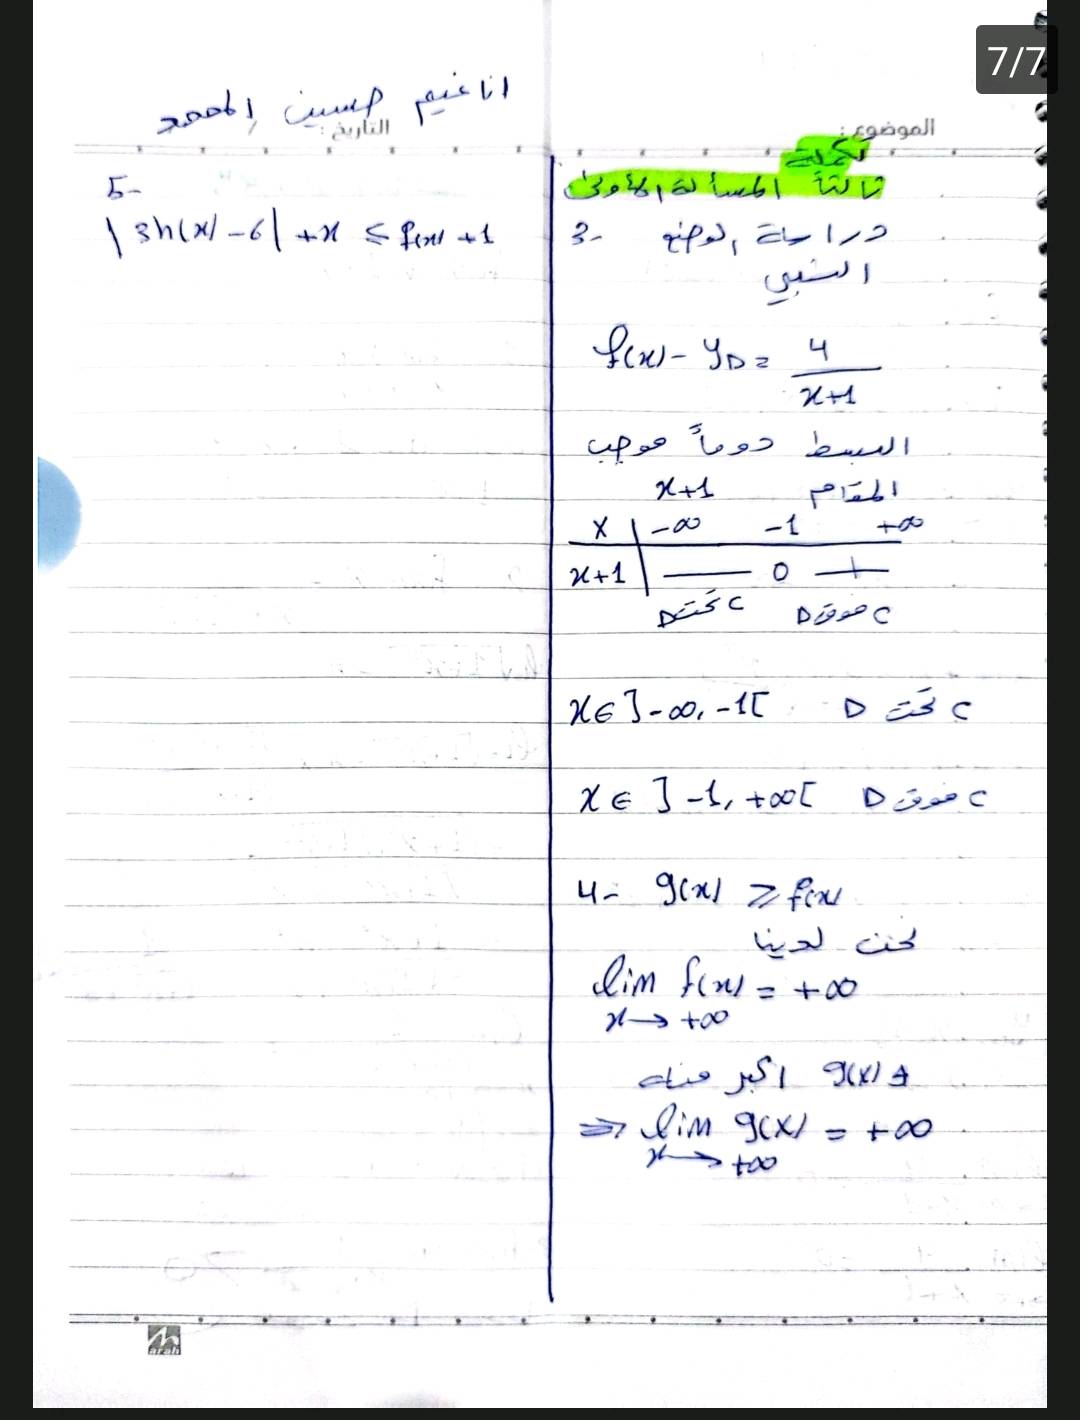 7/7
انا غنيم حسين المحمد
الموضوع :
التاريخ :
تكملة
ثالثاً المسألة الأولى
3- دراسة الوضع
النسبي
f(x) - y_D = 4/(x+1)
البسط دوماً موجب
المقام x+1
x | -∞ -1 +∞
x+1 | — 0 +
C تحت D C فوق D
x∈]-∞, -1[ C تحت D
x∈]-1, +∞[ C فوق D
4- g(x) ≥ f(x)
نحن لدينا
lim f(x) = +∞
x→+∞
g(x) اكبر منه
⇒ lim g(x) = +∞
x→+∞
5-
|3h(x) - 6| + x ≤ f(x) + 1
arab